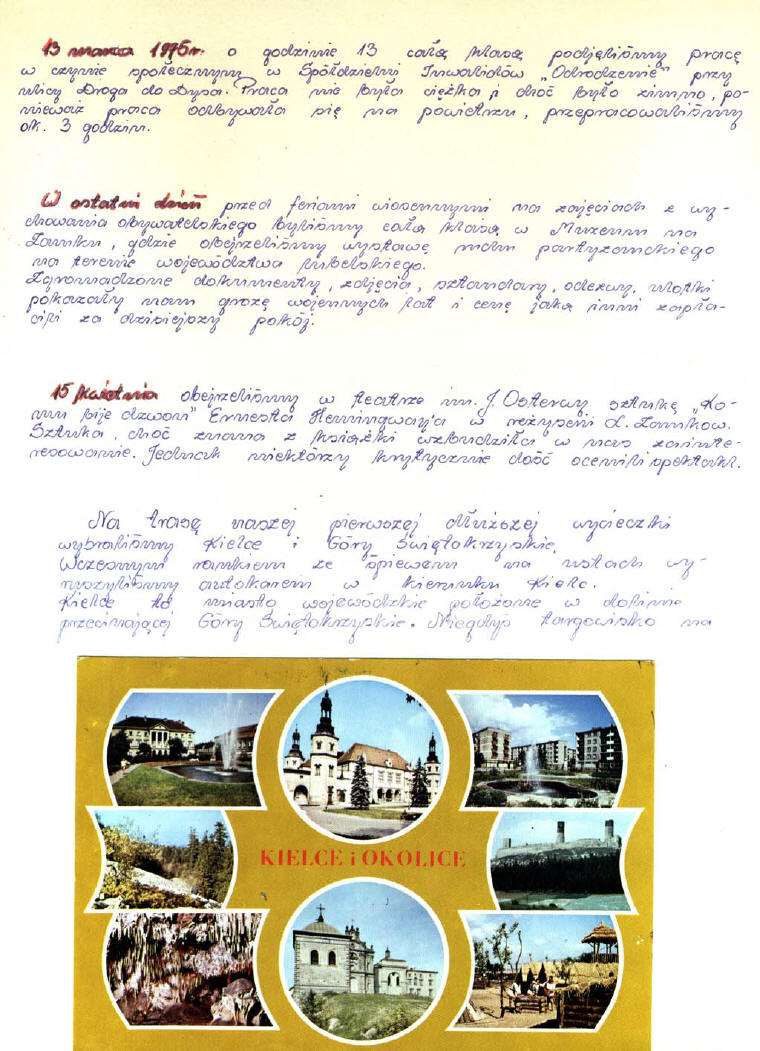 13 marca 1975r. o godzinie 13 całą klasą podjęliśmy pracę
w czynie społecznym w Spółdzielni Inwalidów „Odrodzenie" przy
ulicy Droga do Dysa. Praca nie była ciężka i choć było zimno, po-
nieważ praca odbywała się na powietrzu, przepracowaliśmy
ok. 3 godzin.
W ostatni dzień przed feriami wiosennymi na zajęciach z wy-
chowania obywatelskiego byliśmy całą klasą w Muzeum na
Zamku, gdzie obejrzeliśmy wystawę ruchu partyzanckiego
na terenie województwa lubelskiego.
Zgromadzone dokumenty, zdjęcia, sztandary, odezwy, ulotki
pokazały nam grozę wojennych lat i cenę jaką inni zapła-
cili za dzisiejszy pokój.
15 kwietnia obejrzeliśmy w teatrze im. J. Osterwy sztukę „Ko-
mu bije dzwon" Ernesta Hemingway'a w reżyserii
Sztuka, choć znana z książki wzbudziła w nas zainte-
resowanie. Jednak niektórzy krytycznie dość ocenili spektakl.
Na trasę naszej pierwszej dłuższej wycieczki
wybraliśmy Kielce i Góry Świętokrzyskie.
Wczesnym rankiem ze śpiewem na ustach wy-
ruszyliśmy autokarem w kierunku Kielc.
Kielce to miasto wojewódzkie położone w dolinie
przecinającej Góry Świętokrzyskie. Niegdyś targowisko na
KIELCE i OKOLICE